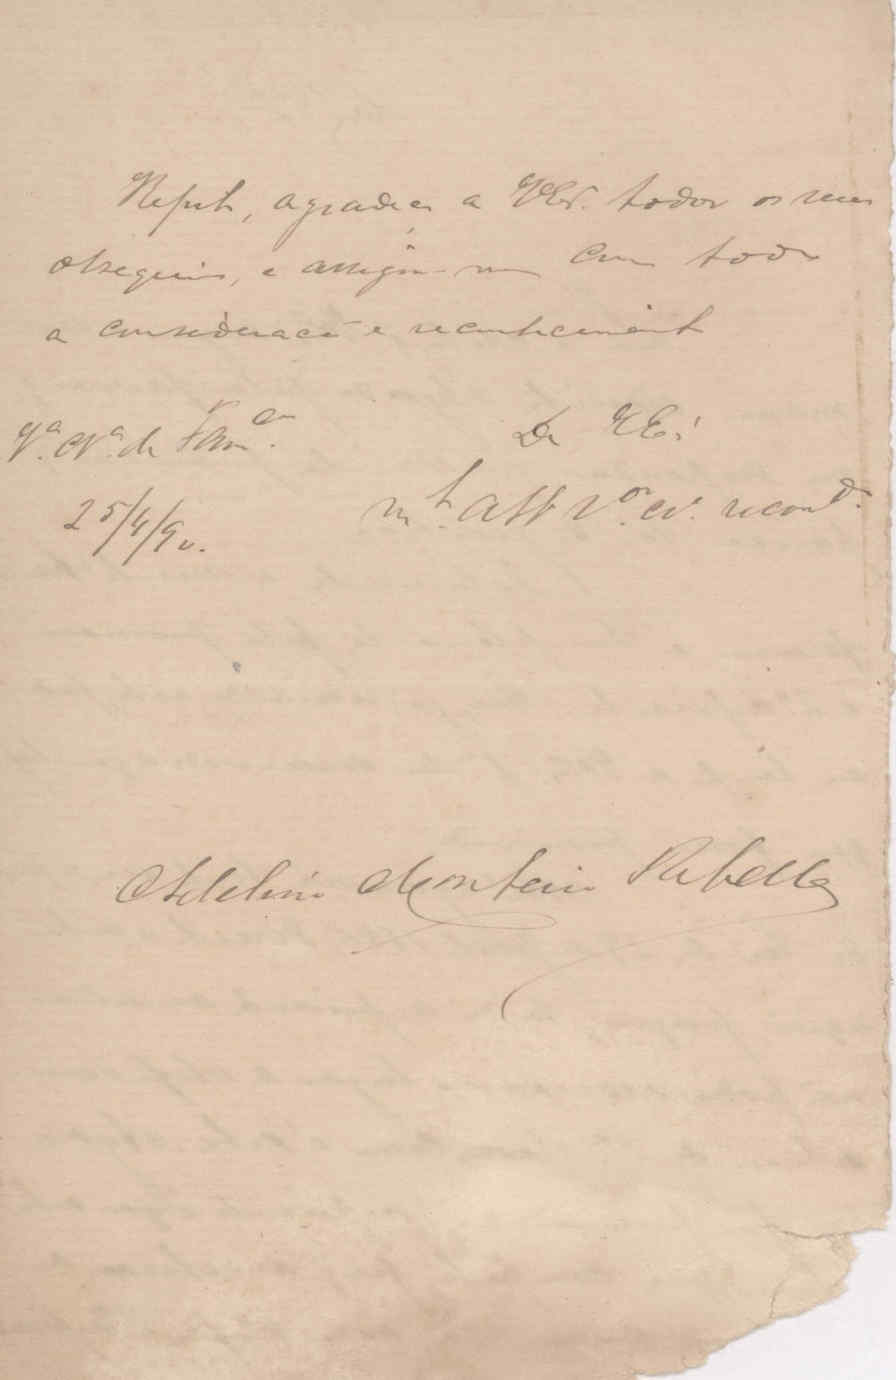 Repito, agradeço a VEx. todos os seus
obsequios, e assigno-me com toda
a consideração e reconhecimento
Vª. Nª. de Famªº.
De VExª
25/4/90.
mtº. attº Vºr. cº. recondº.
Adelino Monteiro Rebello